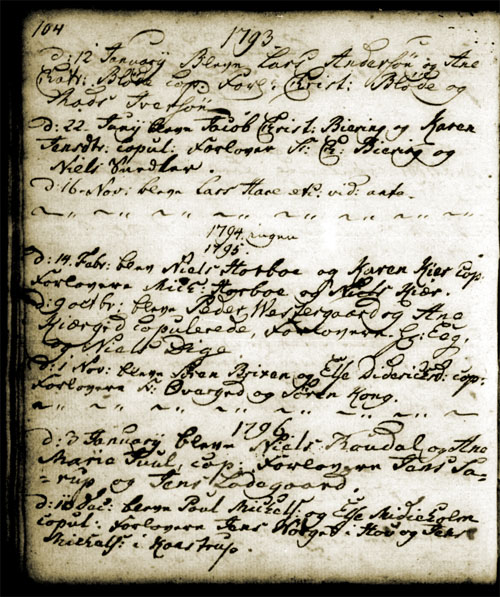 104
1793
d: 12 Januarij bleve Lars Andersøn og Ane
Cop: Forl: Christ: Bløde og
Mads Iversøn
d: 22. Junij bleve Jacob Christ: Biering og Karen
Jensdtr: copul: Forlover S: Chr: Biering og
Niels
d: 16 Nov: bleve Lars Hare etc: vid: ante.
1794 ingen
1795
d: 14 Febr: blev Niels Horboe og Karen Kier cop
Forlovere Mich: Horboe og Niels Kiær.
d: 9 octbr: bleve Peder Westergaard og Ane
copulerede, Forlovere
og Niels Dige
d: 1 Nov: bleve Søren Brixen og Else Didericksd: cop:
Forlovere S: Øvergrd og Søren Kong.
1796
d: 3 Januarij bleve Niels Roudal og Ane
Maria Juul cop: Forlovere Jens
og Jens Ladegaard.
bleve Poul Michels: og Else
copul: Forlovere Jens i Hou og Jens
Michels: i Kaastrup.